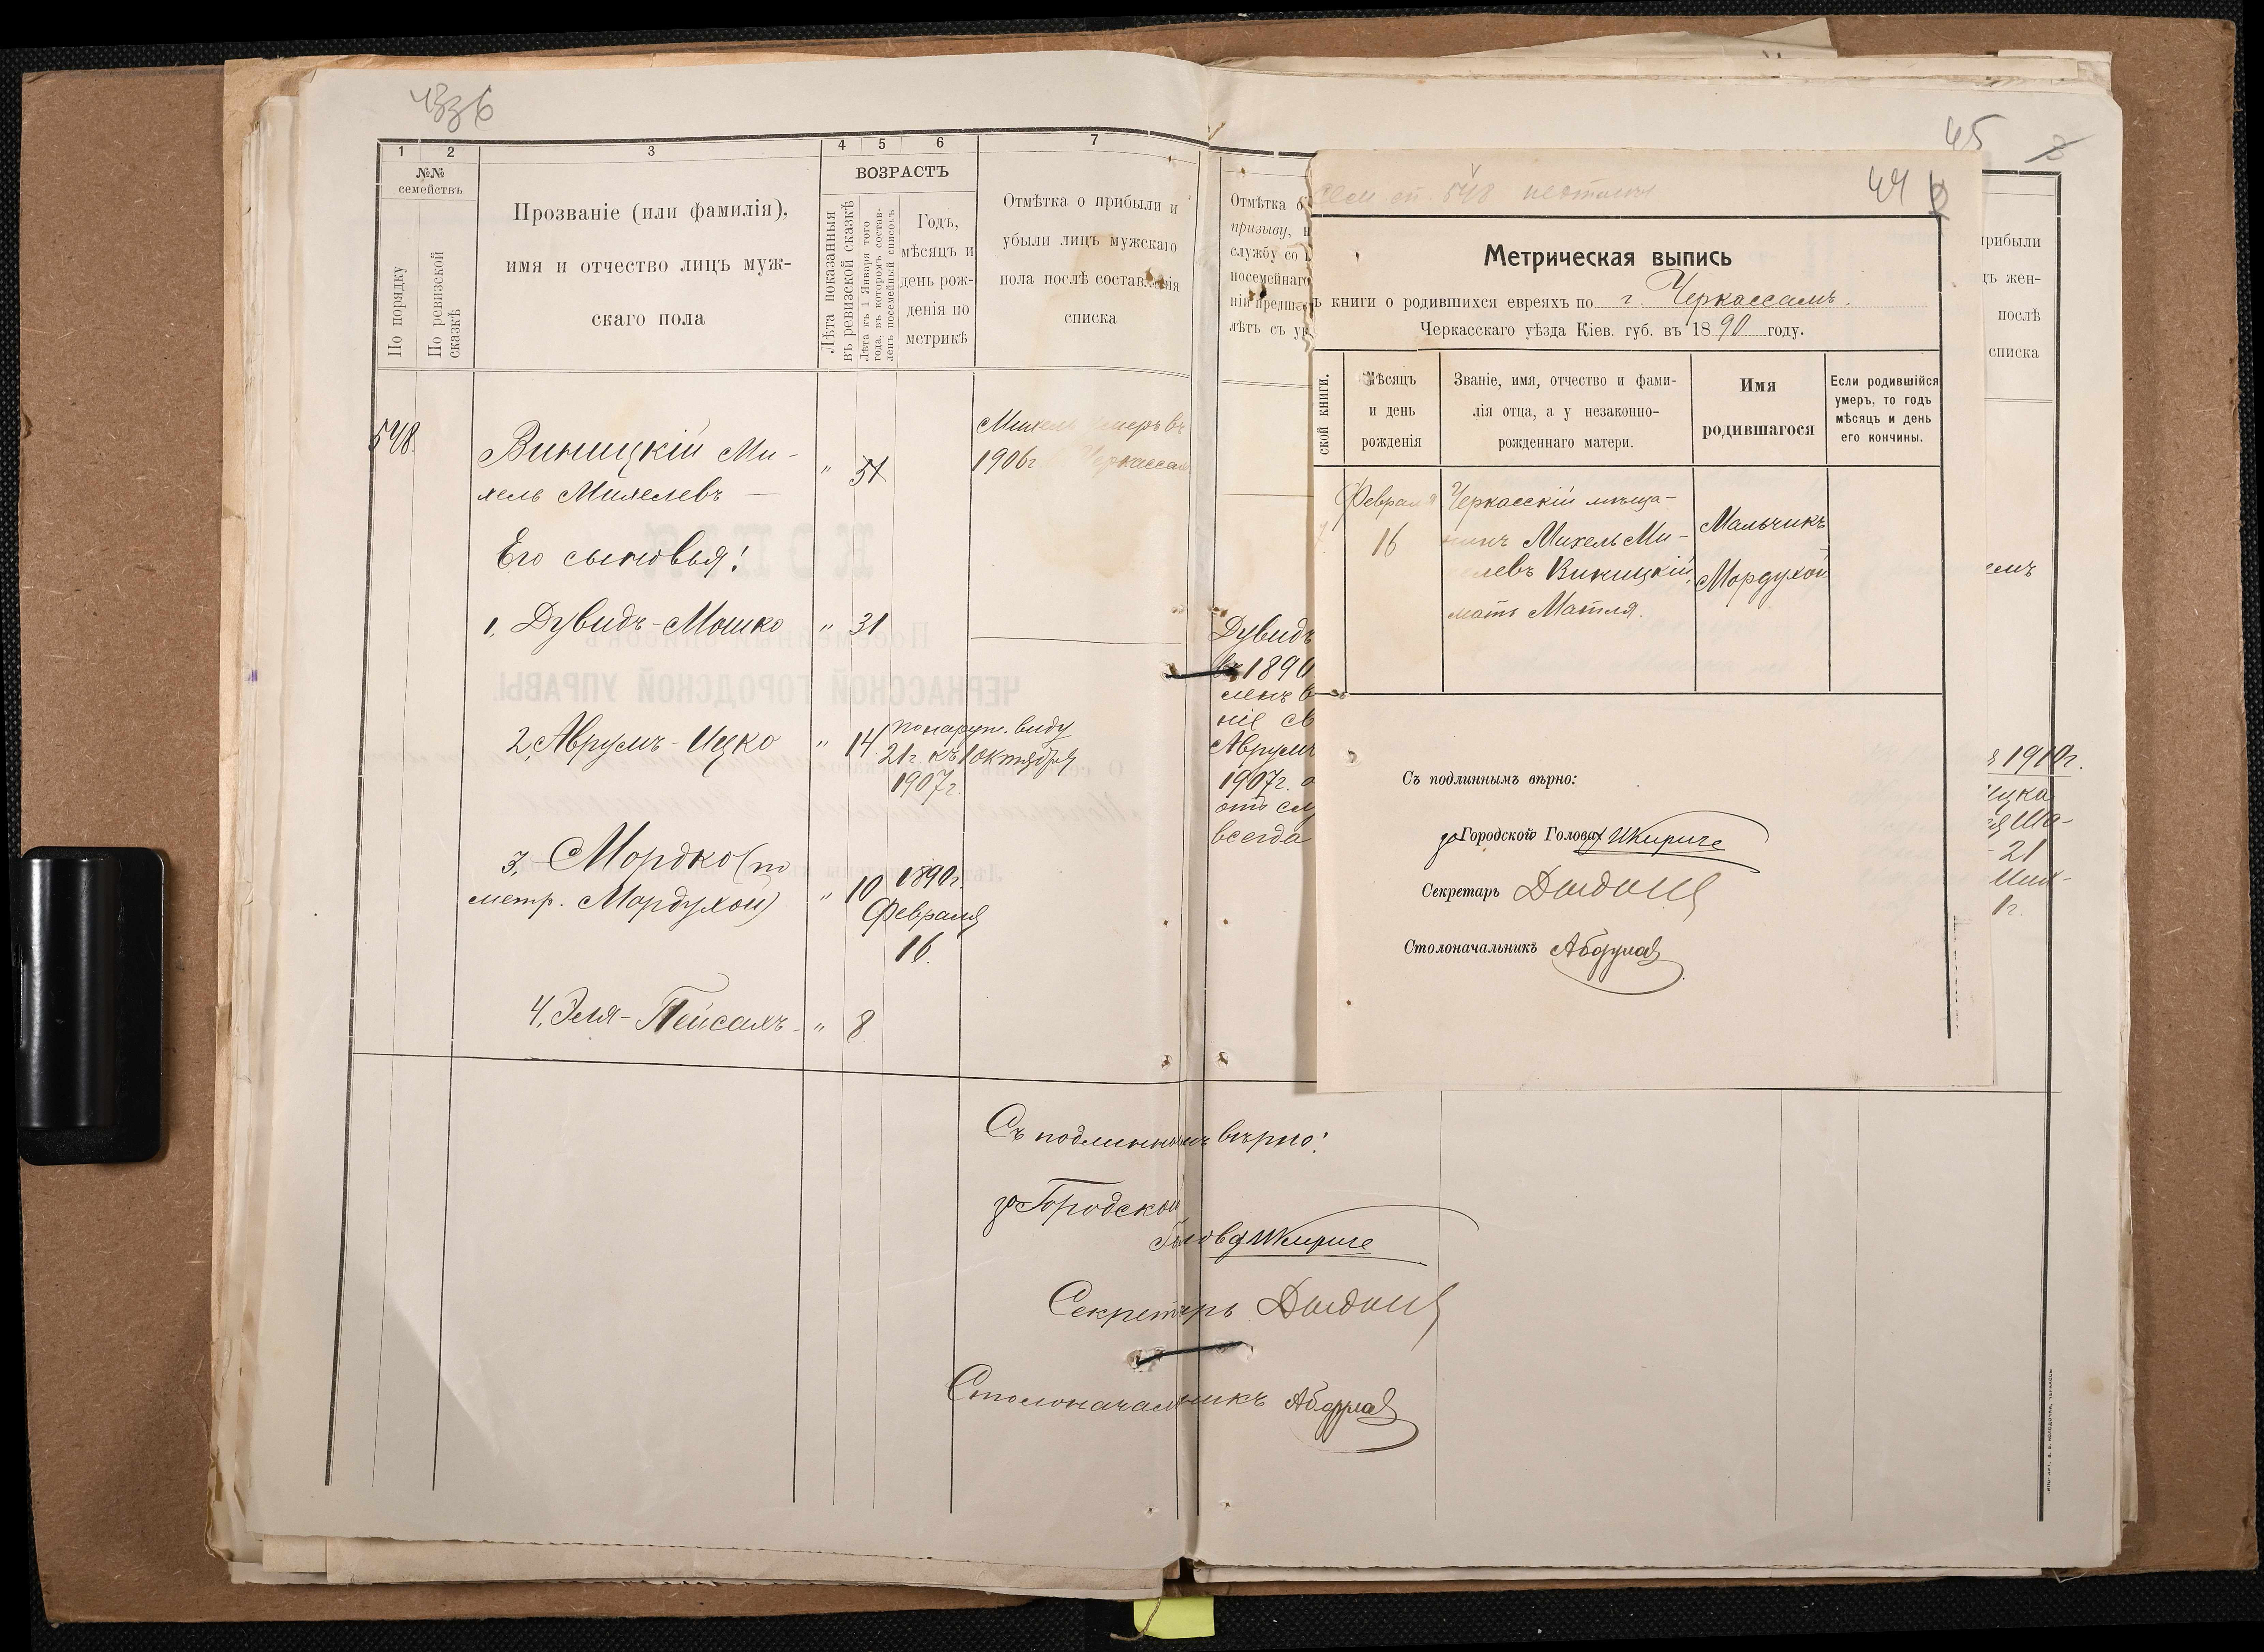 436
1 2 3 4 5 6 7
№№
семействъ
По порядку
По ревизской
сказкѣ
Прозваніе (или фамилія),
имя и отчество лицъ муж-
скаго пола
ВОЗРАСТЪ
Лѣта показанныя
въ ревизской сказкѣ
Лѣта къ 1 Января того
года, въ которомъ состав-
ленъ посемейный списокъ
Годъ,
мѣсяцъ и
день рож-
денія по
метрикѣ
Отмѣтка о прибыли и
убыли лицъ мужскаго
пола послѣ составленія
списка
548.
Виницкій Ми-
хель Михелевъ —
" 51
Михель умеръ въ
1906г. Черкассах
Его сыновья:
1, Дувидъ-Мошко " 31
2, Аврумъ-Ицко " 14.
по наруж. виду
21г. къ 1 октября
1907г.
3, Мордко (по
метр. Мордухой) " 10
1890г.
Февраля
16.
4, Эля-Пейсахъ - " 8
КОПІЯ
ЧЕРКАССКОЙ ГОРОДСКОЙ УПРАВЫ
Съ подлиннымъ вѣрно:
за Городской
Голова
Секретарь
Столоначальникъ
45
Отмѣтка
призыву,
службу со
посемейнаго
лѣтъ съ
Дувидъ
въ 1890
ленъ в
ніе св
Аврумъ
1907г. о
отъ сл
всегда
44
Сем сп. 548
Метрическая выпись
книги о родившихся евреяхъ по г. Черкассамъ.
Черкасскаго уѣзда Кіев. губ. въ 1890 году.
ской книги.
Мѣсяцъ
и день
рожденія
Званіе, имя, отчество и фами-
лія отца, а у незаконно-
рожденнаго матери.
Имя
родившагося
Если родившійся
умеръ, то годъ
мѣсяцъ и день
его кончины.
Февраля
16
Черкасскій мѣща-
нинъ Михель Ми-
хелевъ Виницкій,
мать Матля.
Мальчикъ
Мордухой
Съ подлиннымъ вѣрно:
за Городской Голова
Секретарь
Столоначальникъ
прибыли
жен-
послѣ
списка
емъ
1910г.
ицка
21
1г.